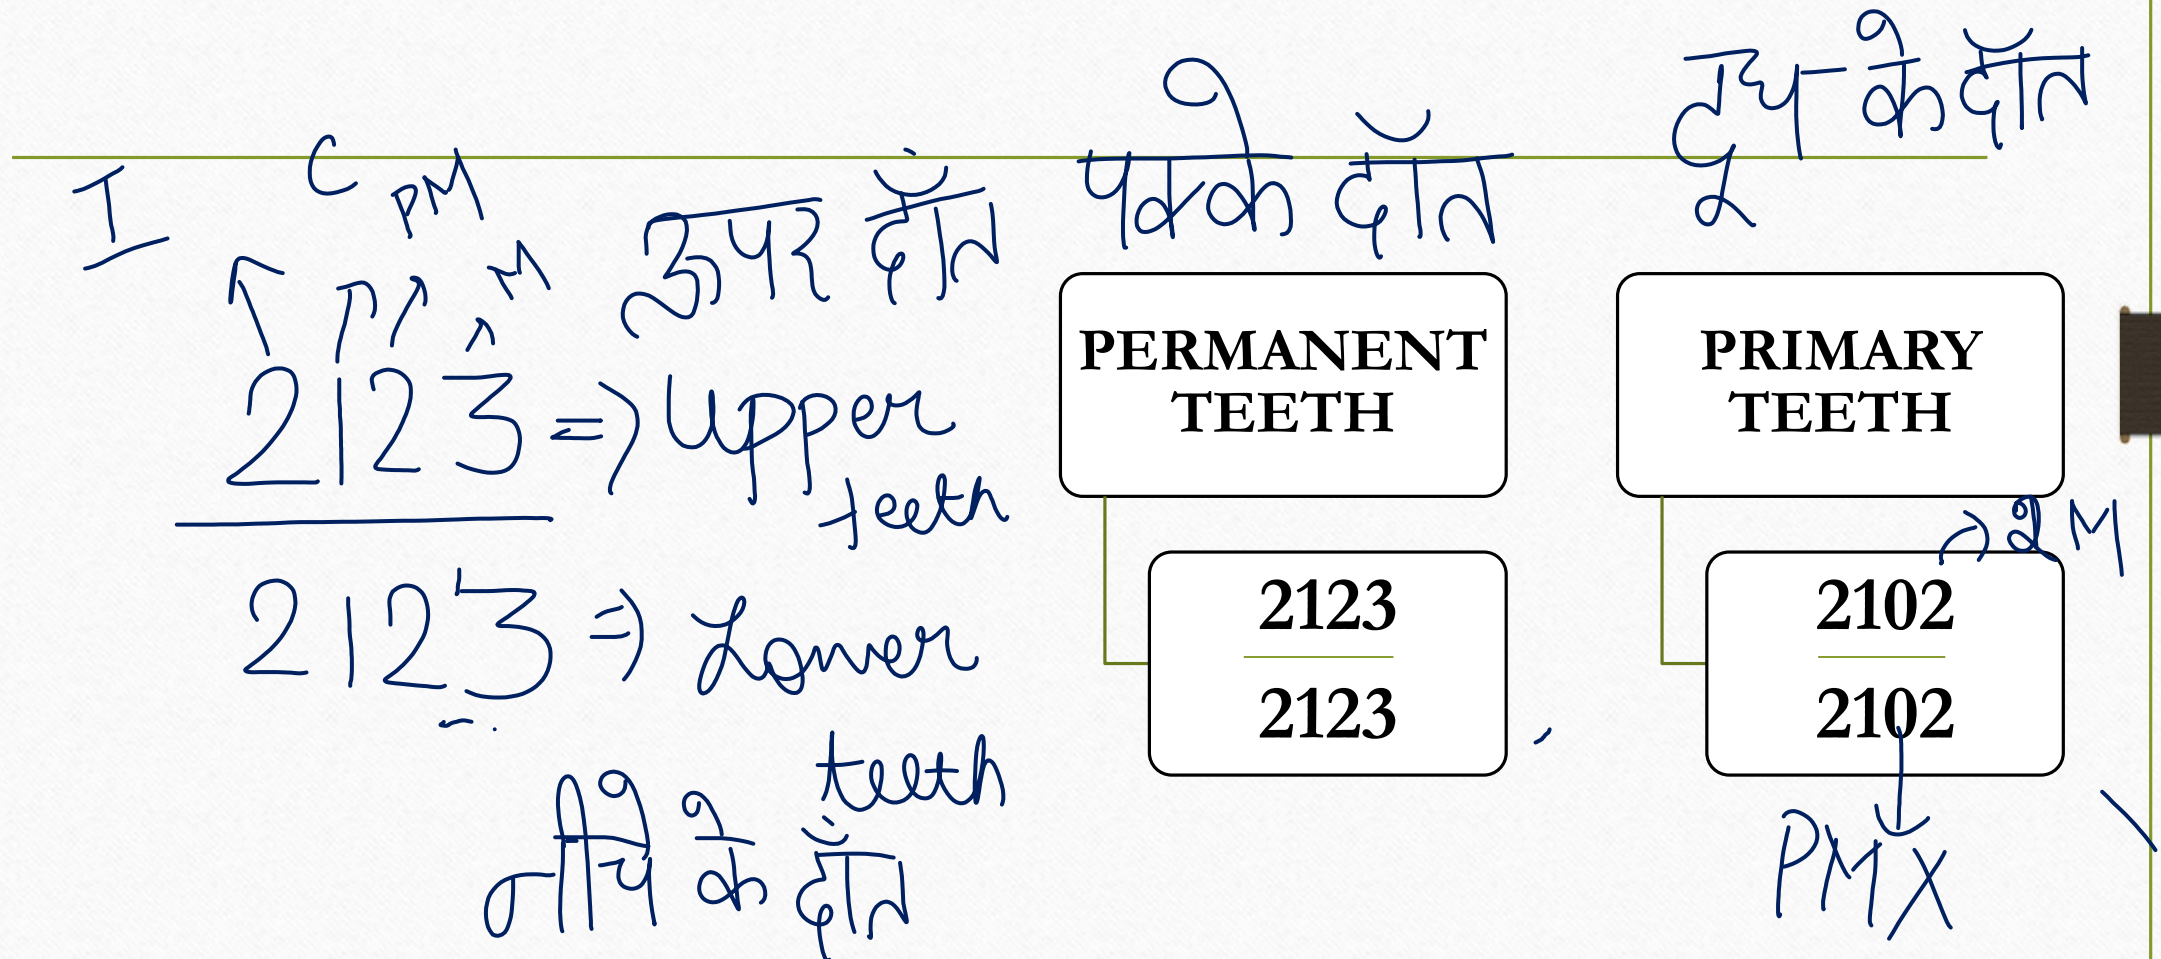 I C PM M
2123 => Upper teeth
उपर दाँत
2123 => Lower teeth
नीचे के दाँत
पक्के दाँत
PERMANENT
TEETH
2123
2123
दुध के दाँत
PRIMARY
TEETH
2102
2102
2 M
PM X